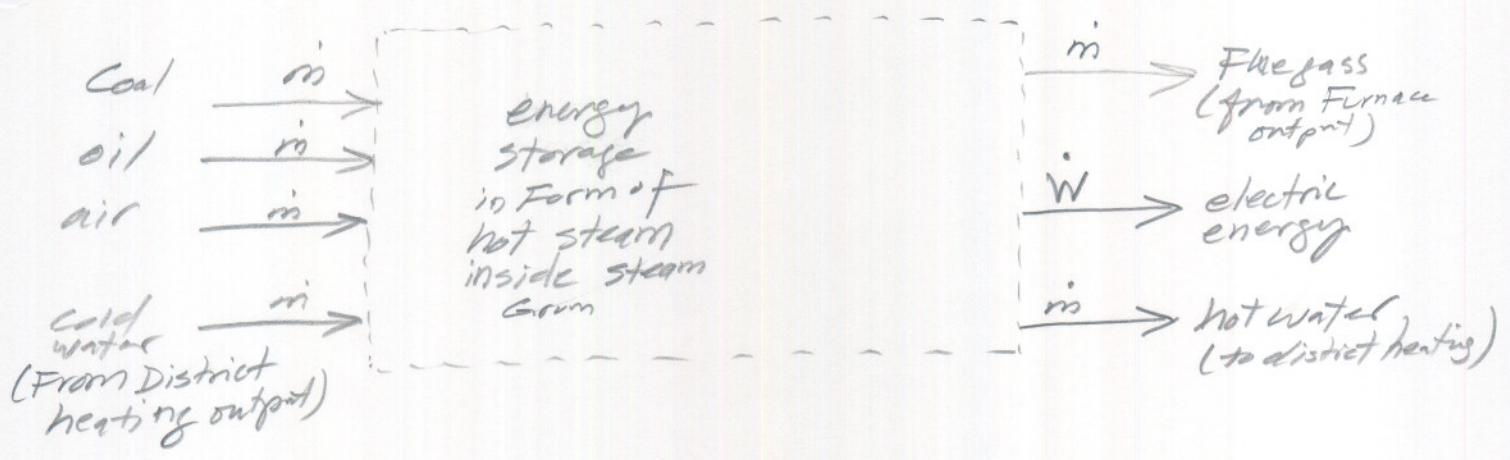 Coal ṁ
oil ṁ
air ṁ
cold ṁ
water
(From District
heating output)
energy
storage
in Form of
hot steam
inside steam
Grum
ṁ Fluegass
(from Furnace
output)
Ẇ electric
energy
ṁ hot water
(to distict heating)